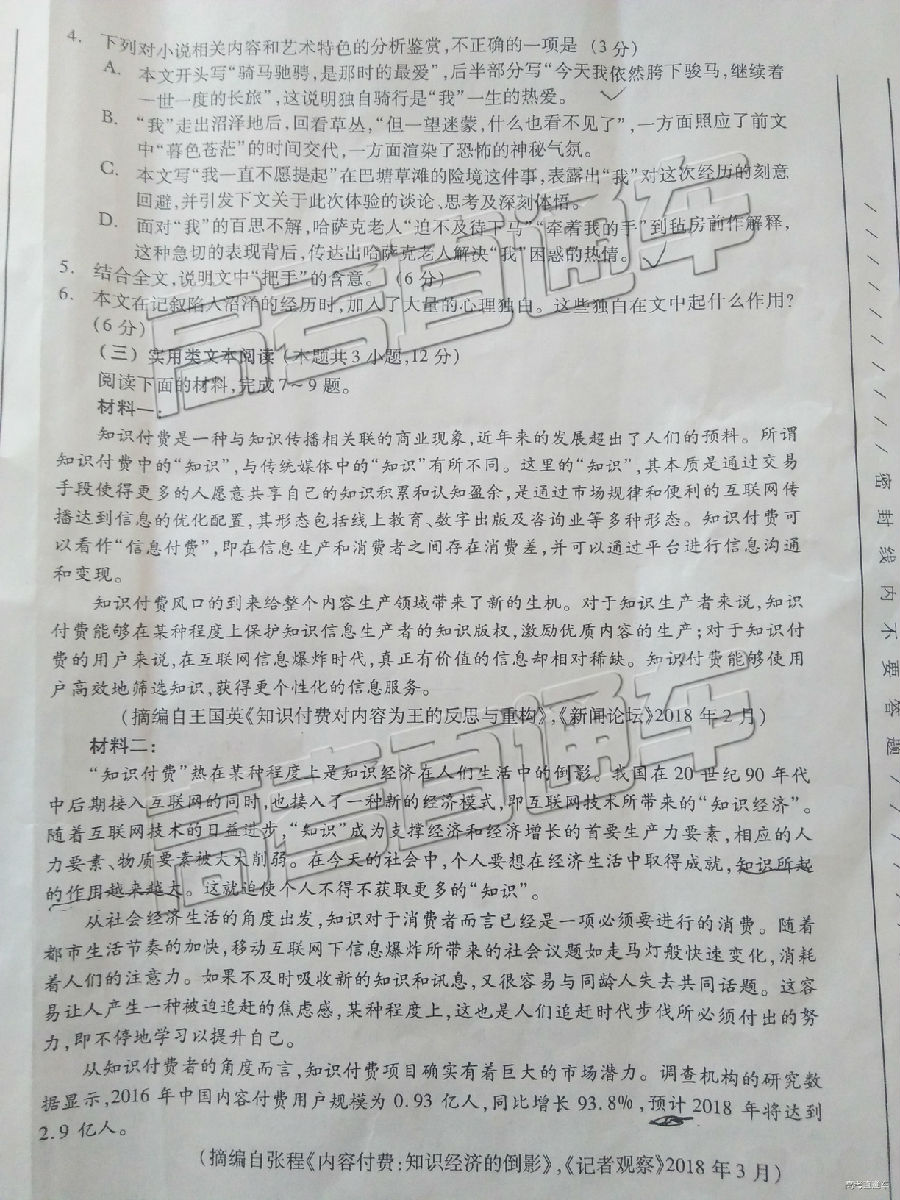 4. 下列对小说相关内容和艺术特色的分析鉴赏,不正确的一项是 (3 分)
A. 本文开头写“骑马驰骋,是那时的最爱”,后半部分写“今天我依然胯下骏马,继续着
一世一度的长旅”,这说明独自骑行是“我”一生的热爱。
B. “我”走出沼泽地后,回看草丛,“但一望迷蒙,什么也看不见了”,一方面照应了前文
中“暮色苍茫”的时间交代,一方面渲染了恐怖的神秘气氛。
C. 本文写“我一直不愿提起”在巴塘草滩的险境这件事,表露出“我”对这次经历的刻意
回避,并引发下文关于此次体验的谈论、思考及深刻体悟。
D. 面对“我”的百思不解,哈萨克老人“迫不及待下马”“牵着我的手”到毡房前作解释,
这种急切的表现背后,传达出哈萨克老人解决“我”困惑的热情。
5. 结合全文,说明文中“把手”的含意。(6 分)
6. 本文在记叙陷入沼泽的经历时,加入了大量的心理独白。这些独白在文中起什么作用?
(6 分)
(三) 实用类文本阅读 (本题共 3 小题,12 分)
阅读下面的材料,完成 7~9 题。
材料一:
知识付费是一种与知识传播相关联的商业现象,近年来的发展超出了人们的预料。所谓
知识付费中的“知识”,与传统媒体中的“知识”有所不同。这里的“知识”,其本质是通过交易
手段使得更多的人愿意共享自己的知识积累和认知盈余,是通过市场规律和便利的互联网传
播达到信息的优化配置,其形态包括线上教育、数字出版及咨询业等多种形态。知识付费可
以看作“信息付费”,即在信息生产和消费者之间存在消费差,并可以通过平台进行信息沟通
和变现。
知识付费风口的到来给整个内容生产领域带来了新的生机。对于知识生产者来说,知识
付费能够在某种程度上保护知识信息生产者的知识版权,激励优质内容的生产;对于知识付
费的用户来说,在互联网信息爆炸时代,真正有价值的信息却相对稀缺。知识付费能够使用
户高效地筛选知识,获得更个性化的信息服务。
(摘编自王国英《知识付费对内容为王的反思与重构》,《新闻论坛》2018 年 2 月)
材料二:
“知识付费”热在某种程度上是知识经济在人们生活中的倒影。我国在 20 世纪 90 年代
中后期接入互联网的同时,也接入了一种新的经济模式,即互联网技术所带来的“知识经济”。
随着互联网技术的日益进步,“知识”成为支撑经济和经济增长的首要生产力要素,相应的人
力要素、物质要素被大大削弱。在今天的社会中,个人要想在经济生活中取得成就,知识所起
的作用越来越大。这就迫使个人不得不获取更多的“知识”。
从社会经济生活的角度出发,知识对于消费者而言已经是一项必须要进行的消费。随着
都市生活节奏的加快,移动互联网下信息爆炸所带来的社会议题如走马灯般快速变化,消耗
着人们的注意力。如果不及时吸收新的知识和讯息,又很容易与同龄人失去共同话题。这容
易让人产生一种被迫追赶的焦虑感,某种程度上,这也是人们追赶时代步伐所必须付出的努
力,即不停地学习以提升自己。
从知识付费者的角度而言,知识付费项目确实有着巨大的市场潜力。调查机构的研究数
据显示,2016 年中国内容付费用户规模为 0.93 亿人,同比增长 93.8%,预计 2018 年将达到
2.9 亿人。
(摘编自张程《内容付费:知识经济的倒影》,《记者观察》2018 年 3 月)
密封线内不要答题
高考直通车
高考直通车
高考直通车